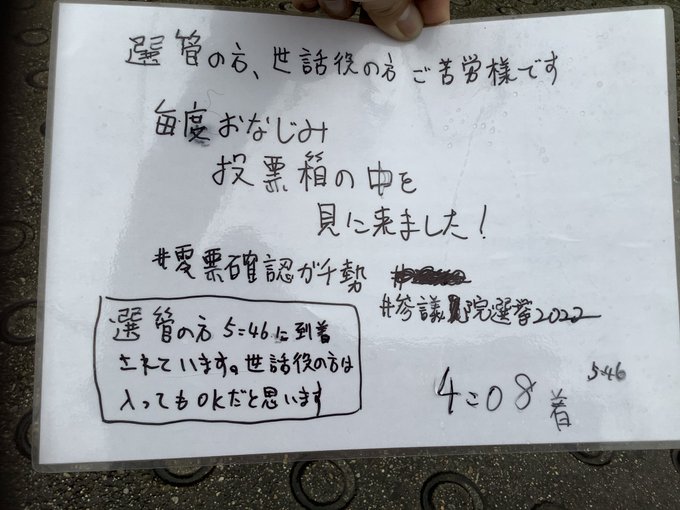 選管の方、世話役の方 ご苦労様です
毎度おなじみ
投票箱の中を
見に来ました!
#零票確認ガチ勢
#参議院選挙2022
選管の方 5:46に到着
されています。世話役の方は
入ってもOKだと思います
4:08着
5:46